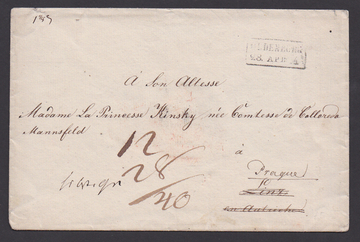 À Son Altesse
Madame La Princesse Kinsky née Comtesse de Colloredo
Mannsfeld
à
Prague
Linz
en Autriche
12
28
40